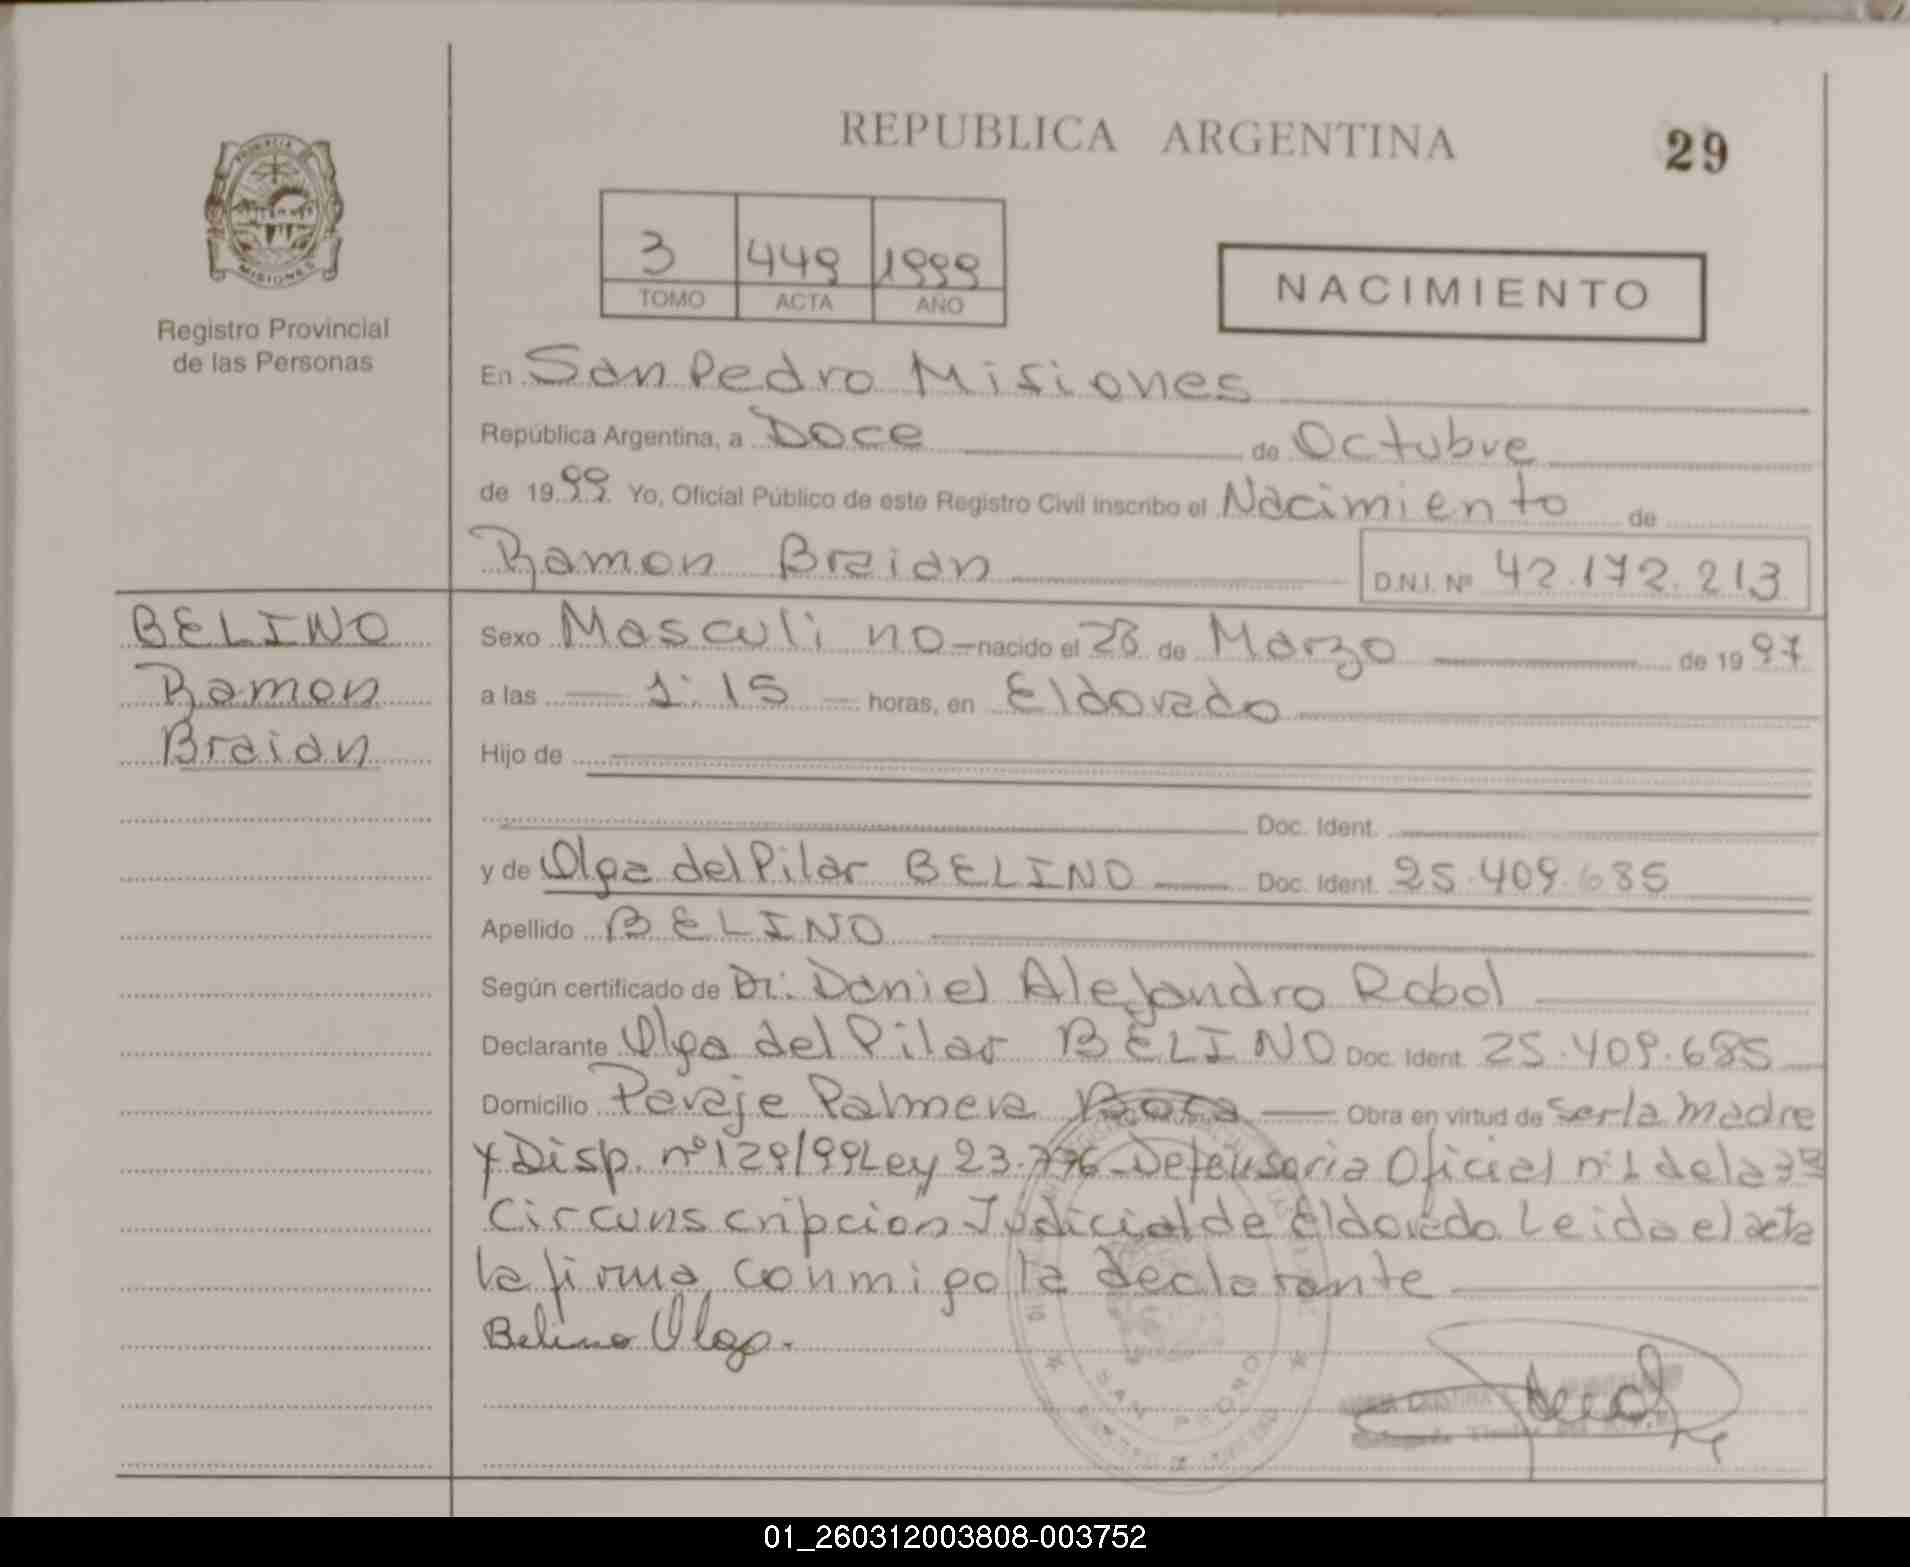 REPUBLICA ARGENTINA
29
PROVINCIA
MISIONES
Registro Provincial
de las Personas
3 449 1999
TOMO ACTA AÑO
NACIMIENTO
En San Pedro Misiones
República Argentina, a Doce de Octubre
de 1999. Yo, Oficial Público de este Registro Civil inscribo el Nacimiento de
Ramon Braian D.N.I. Nº 42.172.213
BELINO
Ramon
Braian
Sexo Masculino nacido el 28 de Marzo de 1997
a las 1:15 horas, en Eldorado
Hijo de
Doc. Ident.
y de Olga del Pilar BELINO Doc. Ident. 25.409.685
Apellido BELINO
Según certificado de Dr. Daniel Alejandro Robol
Declarante Olga del Pilar BELINO Doc. Ident. 25.409.685
Domicilio Paraje Palmera Boca Obra en virtud de ser la madre
y Disp. nº 129/99 Ley 23.776 - Defensoria Oficial nº 1 de la 3ª
Circunscripcion Judicial de Eldorado Leida el acta
la firma conmigo la declarante
Belino Olga.
SAN PEDRO